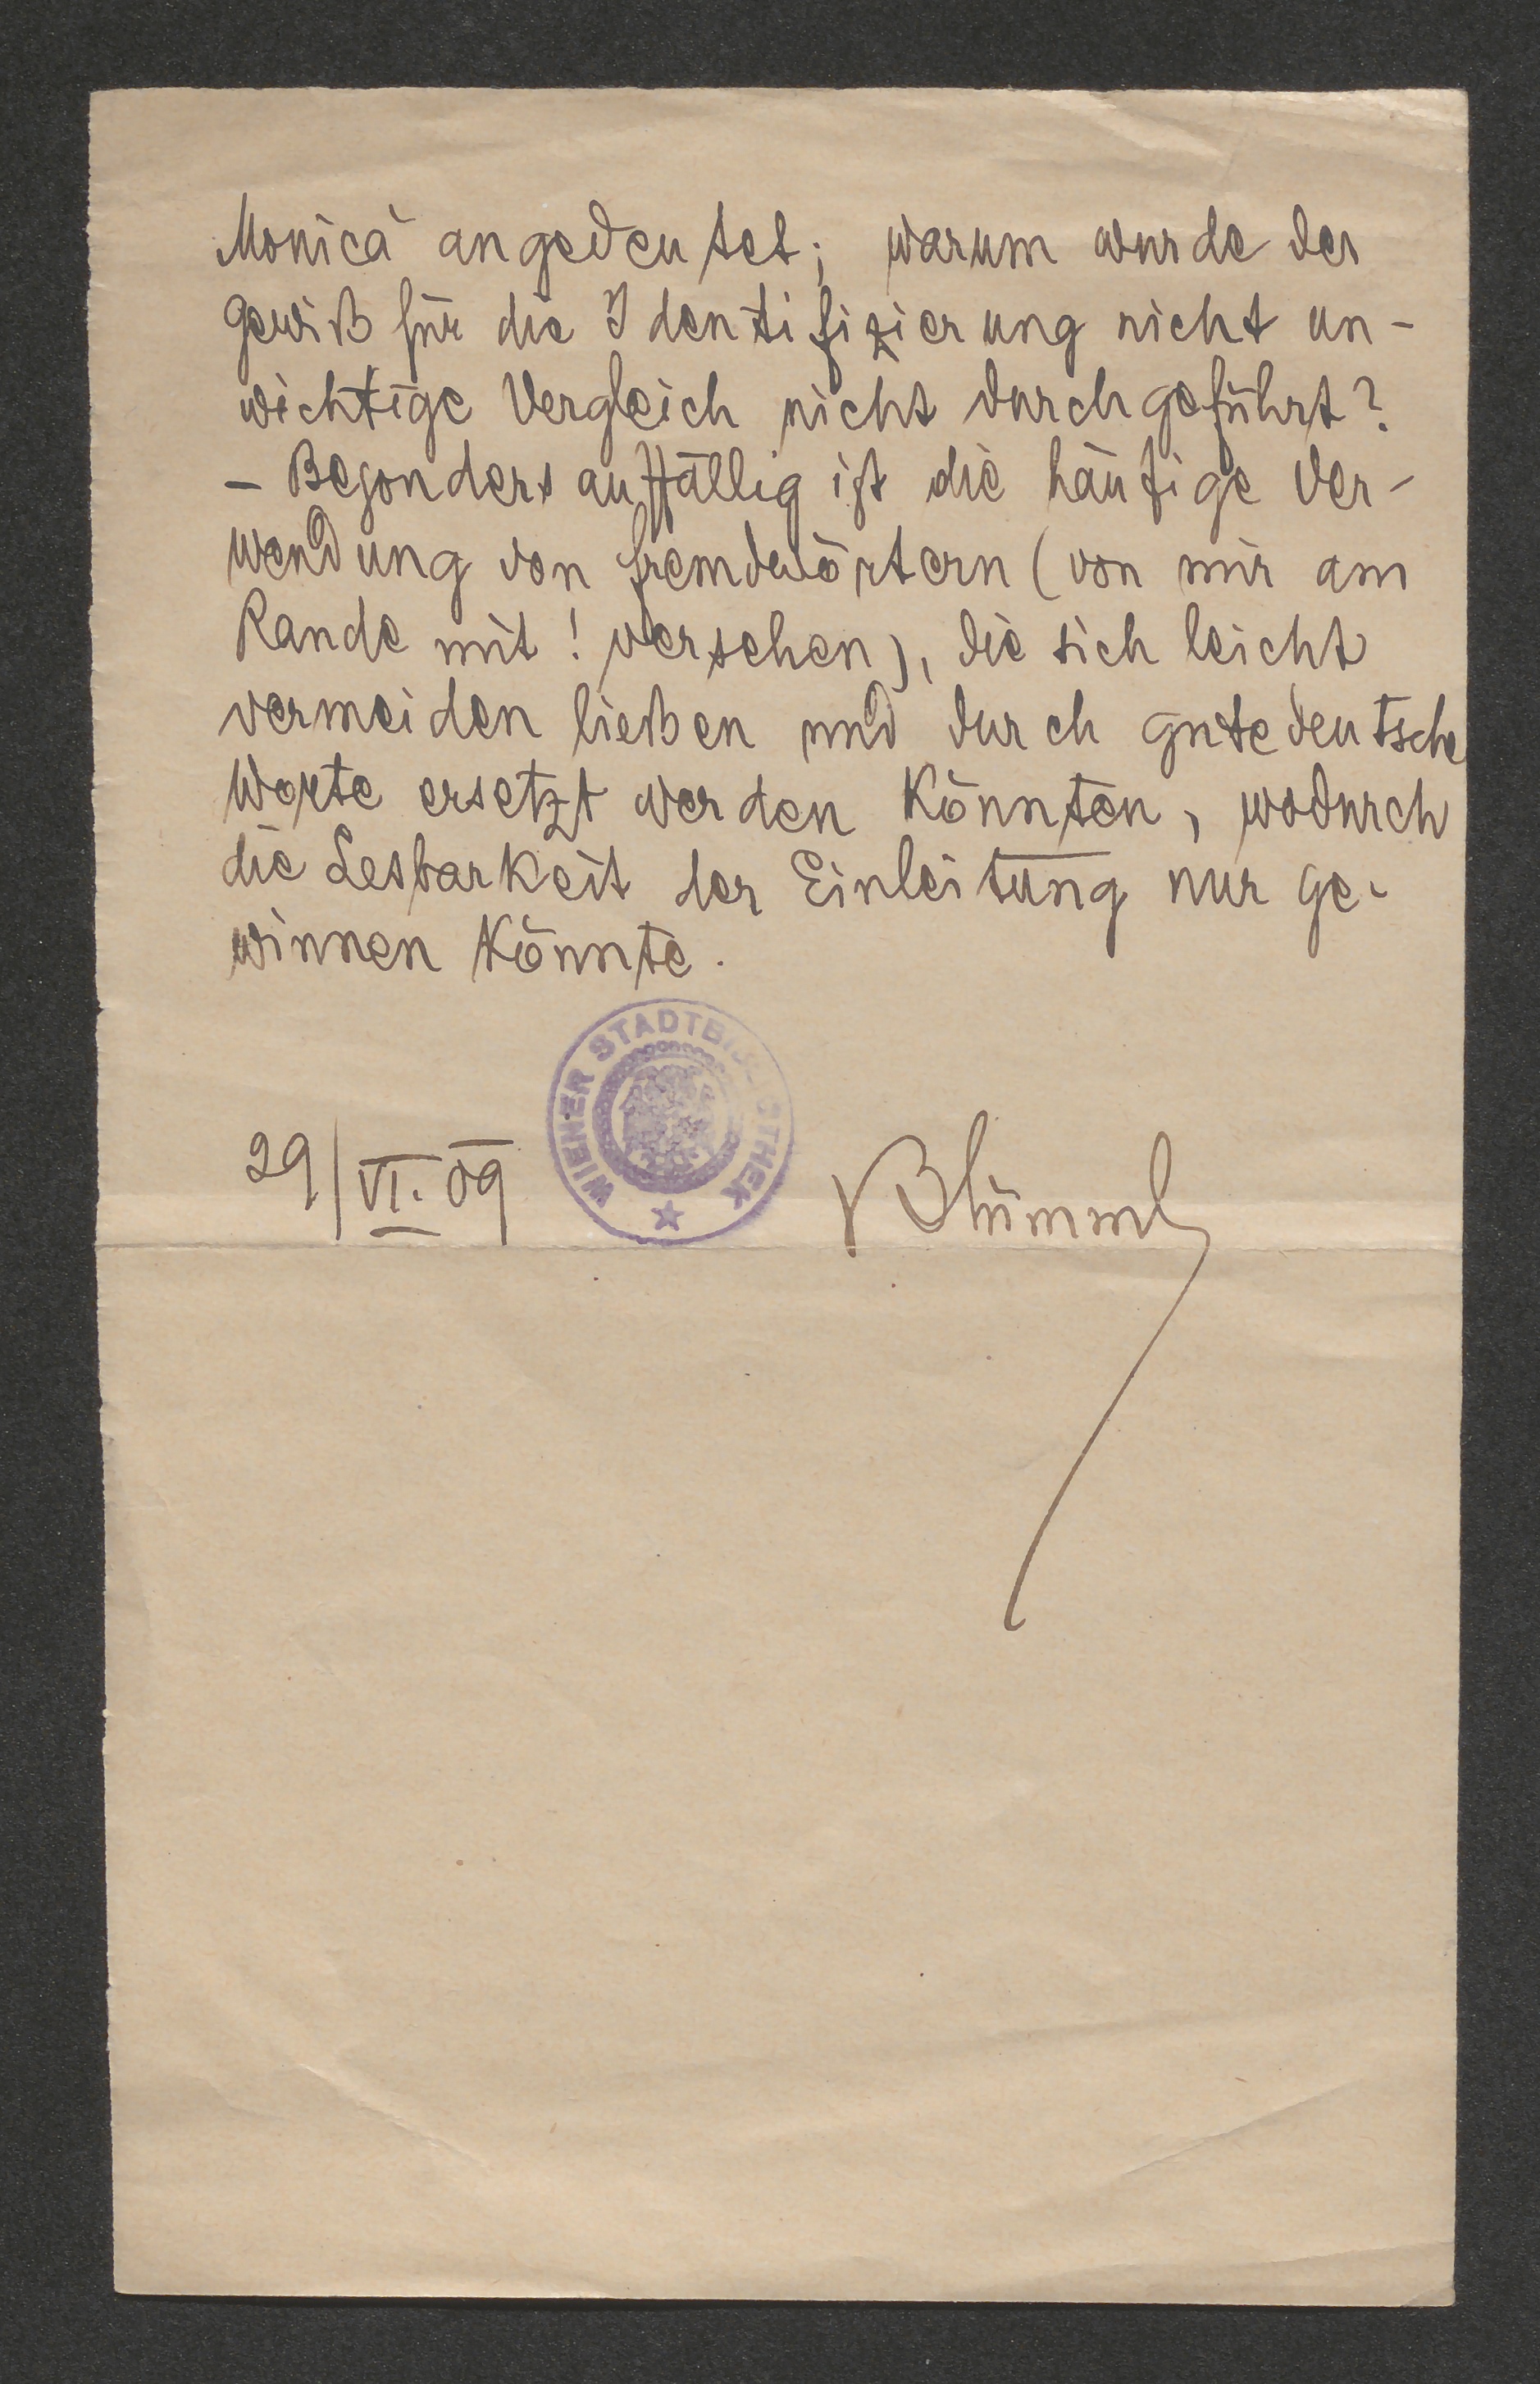 Monica angedeutet; warum wurde der
gewiß für die Identifizierung nicht un-
wichtige Vergleich nicht durchgeführt?
- Besonders auffällig ist die häufige Ver-
wendung von Fremdwörtern (von mir am
Rande mit ! versehen), die sich leicht
vermeiden ließen und durch gute deutsche
Worte ersetzt werden könnten, wodurch
die Lesbarkeit der Einleitung nur ge-
winnen könnte.
WIENER STADTBIBLIOTHEK
29/VI. 09
Blümml